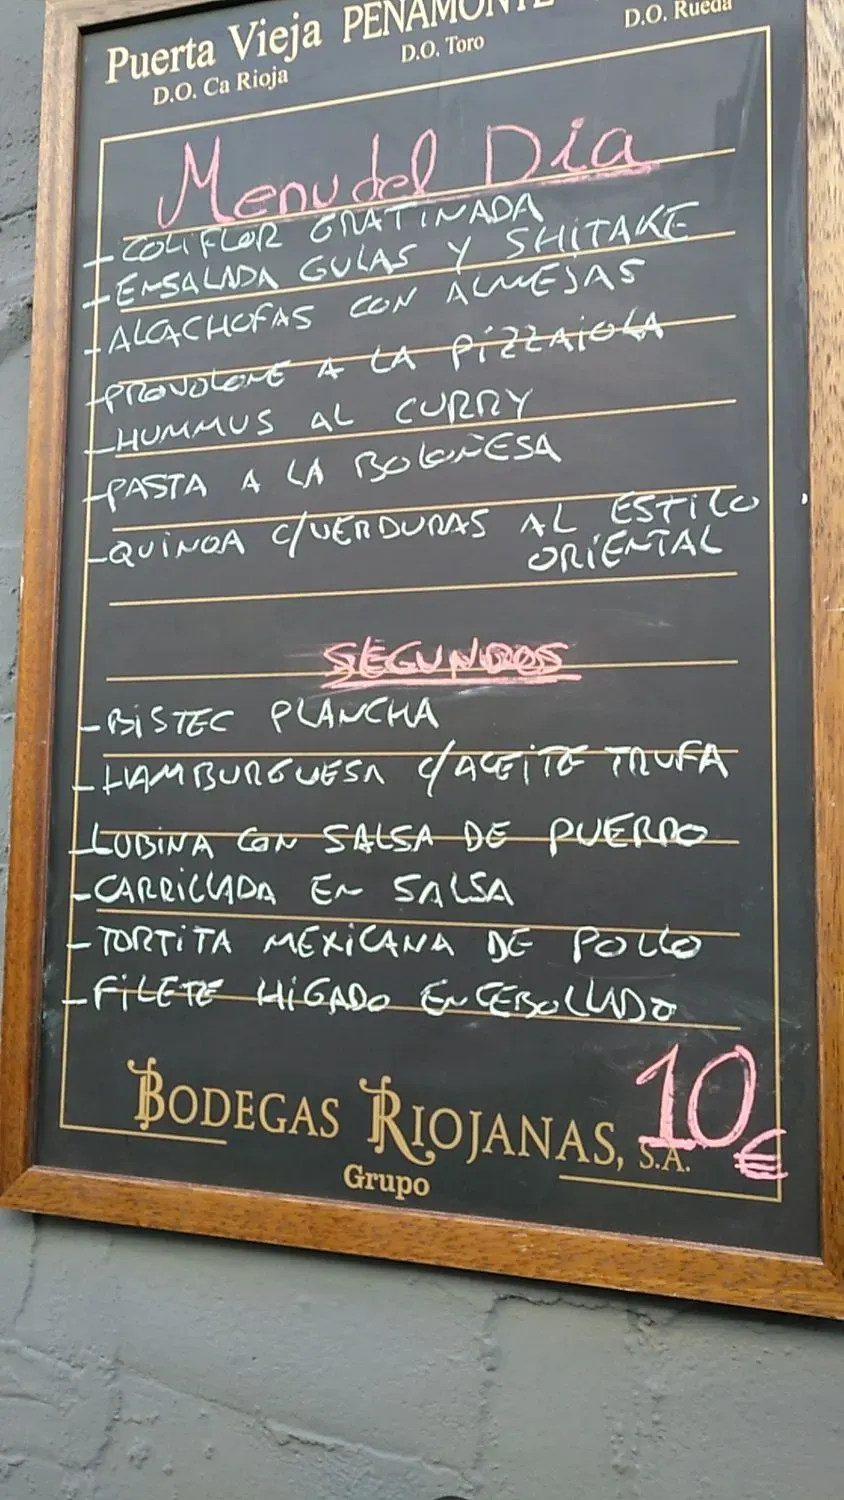 Puerta Vieja PEÑAMONTE
D.O. Ca Rioja D.O. Toro D.O. Rueda
Menu del Día
- COLIFLOR GRATINADA
- ENSALADA GULAS Y SHITAKE
- ALCACHOFAS CON ALMEJAS
- PROVOLONE A LA PIZZAIOLA
- HUMMUS AL CURRY
- PASTA A LA BOLOÑESA
- QUINOA C/VERDURAS AL ESTILO
ORIENTAL
SEGUNDOS
- BISTEC PLANCHA
- HAMBURGUESA C/ACEITE TRUFA
- LUBINA CON SALSA DE PUERRO
- CARRILLADA EN SALSA
- TORTITA MEXICANA DE POLLO
- FILETE HIGADO ENCEBOLLADO
10€
BODEGAS RIOJANAS, S.A.
Grupo